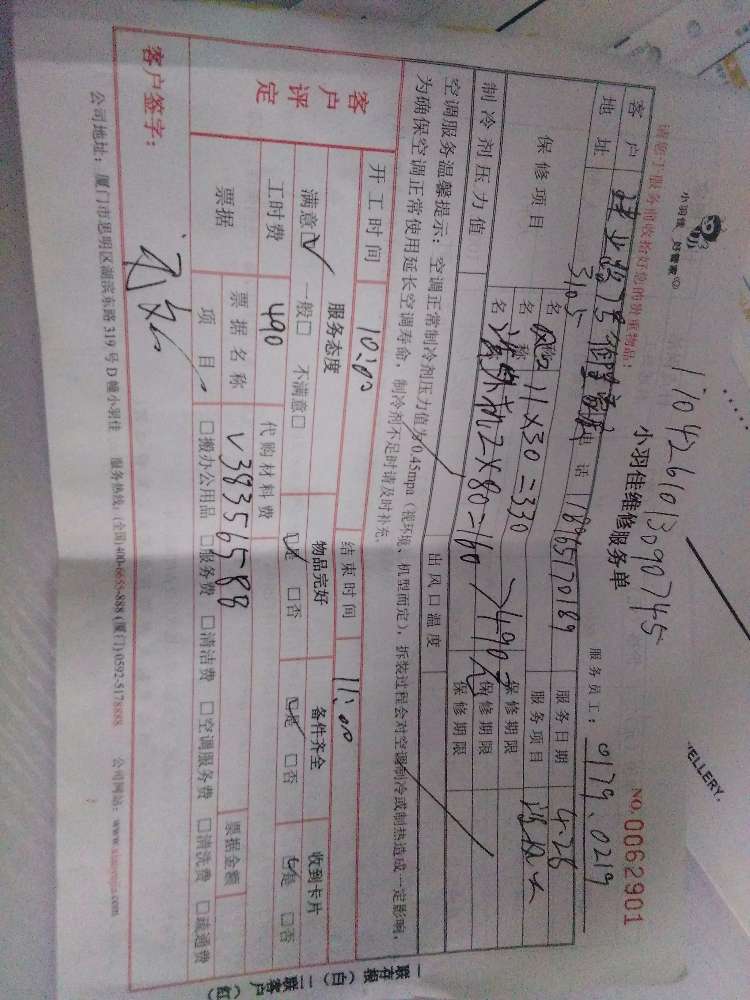 小羽佳 好管家
1704261013090745
小羽佳维修服务单
NO.0062901
请您于服务前收拾好您的贵重物品:
服务员工: 0179.0219
客户
地址
3105
电话 18965170189
服务日期 4.26
保修项目
名称 风口 11×30=330
服务项目
保修期限
名称 洗外机 2×80=160
490元
保修期限
制冷剂压力值
出风口温度
保修期限
空调服务温馨提示:空调正常制冷剂压力值为0.45mpa(视环境、机型而定),拆装过程会对空调制冷或制热造成一定影响,
为确保空调正常使用延长空调寿命,制冷剂不足时请及时补充。
开工时间 10:00 结束时间 11:00
客户评定
服务态度 物品完好 备件齐全 收到卡片
满意☑ 一般□ 不满意□ ☑是 □否 ☑是 □否 ☑是 □否
工时费 490 代购材料费
票据 票据名称 V38356588 票据金额
项目 □搬办公用品 □服务费 □清洁费 □空调服务费 □清洗费 □疏通费
客户签字:
公司地址:厦门市思明区湖滨东路319号D幢小羽佳 服务热线:(全国)400-6655-888(厦门)0592-5178888 公司网站:www.xiaoyujia.com
一联存根(白) 二联客户(红)
WELLERY.